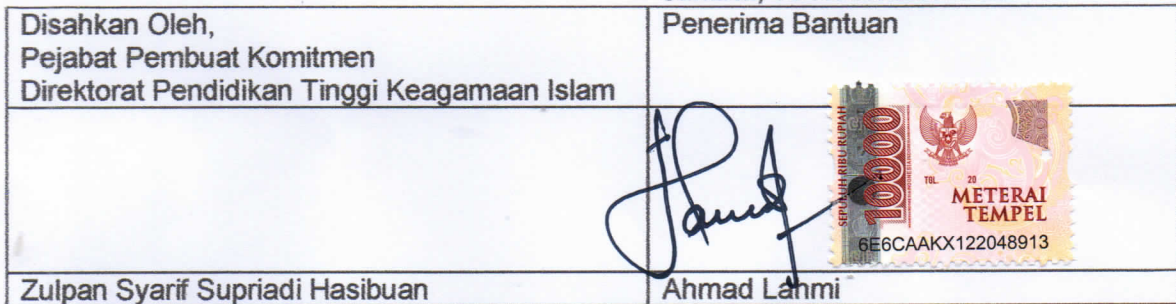 Disahkan Oleh,
Pejabat Pembuat Komitmen
Direktorat Pendidikan Tinggi Keagamaan Islam
Penerima Bantuan
SEPULUH RIBU RUPIAH
10000
TGL. 20
METERAI
TEMPEL
6E6CAAKX122048913
Zulpan Syarif Supriadi Hasibuan
Ahmad Lahmi